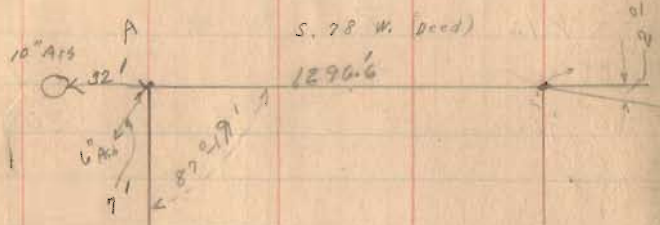 A
S. 78 W. (Deed)
10" Ash
32'
1296.6'
6" Ash
87° 19'
7'